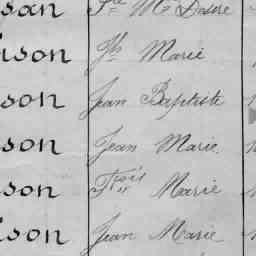 san Fre Mie Désiré
son Jh Marie
son Jean Baptiste
son Jean Marie
son Fçois Marie
son Jean Marie